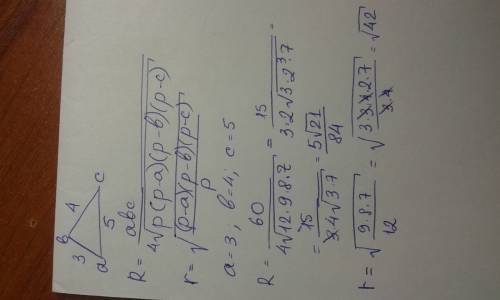 3 b 4 c
a 5
R = abc / 4√p(p-a)(p-b)(p-c)
r = √(p-a)(p-b)(p-c) / p
a = 3, b=4; c = 5
R = 60 / 4√12·9·8·7 = 15 / 3·2√3·2³·7 =
= 15 / 3·4√3·7 = 5√21 / 84
r = √9·8·7 / 12 = √3·3·4·2·7 / 3·4 = √42